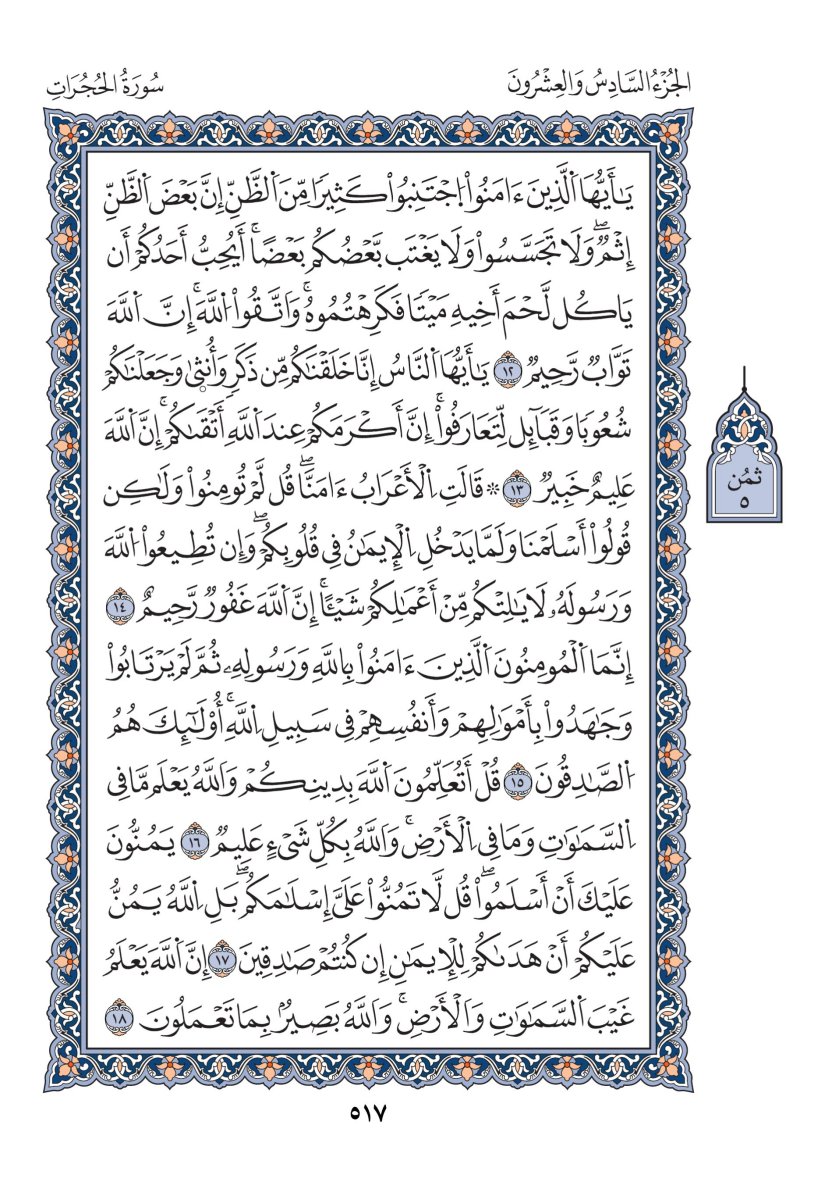 الجُزْءُ السَّادِسُ وَالعِشْرُونَ
سُورَةُ الحُجُرَاتِ
يَـٰٓأَيُّهَا اَ۬لَّذِينَ ءَامَنُواْ اُ۪جْتَنِبُواْ كَثِيرٗا مِّنَ اَ۬لظَّنِّ إِنَّ بَعْضَ اَ۬لظَّنِّ
إِثْمٞۖ وَلَا تَجَسَّسُواْ وَلَا يَغْتَب بَّعْضُكُم بَعْضًاۚ أَيُحِبُّ أَحَدُكُمْ أَن
يَاكُل لَّحْمَ أَخِيهِ مَيْتٗا فَكَرِهْتُمُوهُۚ وَاَتَّقُواْ اُ۬للَّهَۚ إِنَّ اَ۬للَّهَ
تَوَّابٞ رَّحِيمٞ ١٢ يَـٰٓأَيُّهَا اَ۬لنَّاسُ إِنَّا خَلَقْنَـٰكُم مِّن ذَكَرٖ وَأُنث۪ىٰ وَجَعَلْنَـٰكُمْ
شُعُوبٗا وَقَبَآئِل لِّتَعَارَفُواْۚ إِنَّ أَكْرَمَكُمْ عِندَ اَ۬للَّهِ أَتْقَىٰكُمْۚ إِنَّ اَ۬للَّهَ
عَلِيمٌ خَبِيرٞ ١٣ ۞ قَالَتِ اِ۬لْأَعْرَابُ ءَامَنَّاۖ قُل لَّمْ تُومِنُواْ وَلَـٰكِن
قُولُوٓاْ أَسْلَمْنَا وَلَمَّا يَدْخُلِ اِ۬لْإِيمَـٰنُ فِي قُلُوبِكُمْۖ وَإِن تُطِيعُواْ اُ۬للَّهَ
وَرَسُولَهُۥ لَا يَالِتْكُم مِّنْ أَعْمَـٰلِكُمْ شَيْـًٔاۚ إِنَّ اَ۬للَّهَ غَفُورٞ رَّحِيمٌ ١٤
إِنَّمَا اَ۬لْمُومِنُونَ اَ۬لَّذِينَ ءَامَنُواْ بِاللَّهِ وَرَسُولِهِۦ ثُمَّ لَمْ يَرْتَابُواْ
وَجَـٰهَدُواْ بِأَمْوَٰلِهِمْ وَأَنفُسِهِمْ فِي سَبِيلِ اِ۬للَّهِۚ أُوْلَـٰٓئِكَ هُمُ
اُ۬لصَّـٰدِقُونَ ١٥ قُلْ أَتُعَلِّمُونَ اَ۬للَّهَ بِدِينِكُمْ وَاَللَّهُ يَعْلَم مَّا فِي
اِ۬لسَّمَـٰوَٰتِ وَمَا فِي اِ۬لْأَرْضِۚ وَاَللَّهُ بِكُلِّ شَيْءٍ عَلِيمٞ ١٦ يَمُنُّونَ
عَلَيْكَ أَنْ أَسْلَمُواْۖ قُل لَّا تَمُنُّواْ عَلَيَّ إِسْلَـٰمَكُمۖ بَلِ اِ۬للَّهُ يَمُنُّ
عَلَيْكُمْ أَنْ هَدَىٰكُمْ لِلْإِيمَـٰنِ إِن كُنتُمْ صَـٰدِقِينَ ١٧ إِنَّ اَ۬للَّهَ يَعْلَمُ
غَيْبَ اَ۬لسَّمَـٰوَٰتِ وَالْأَرْضِۚ وَاَللَّهُ بَصِيرُۢ بِمَا تَعْمَلُونَ ١٨
ثُمُن
٥
٥١٧